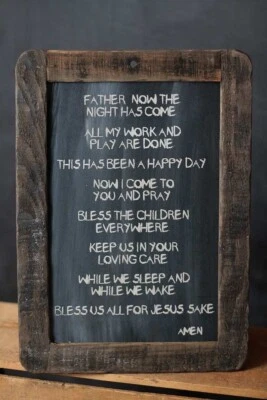 FATHER NOW THE
NIGHT HAS COME
ALL MY WORK AND
PLAY ARE DONE
THIS HAS BEEN A HAPPY DAY
NOW I COME TO
YOU AND PRAY
BLESS THE CHILDREN
EVERYWHERE
KEEP US IN YOUR
LOVING CARE
WHILE WE SLEEP AND
WHILE WE WAKE
BLESS US ALL FOR JESUS SAKE
AMEN